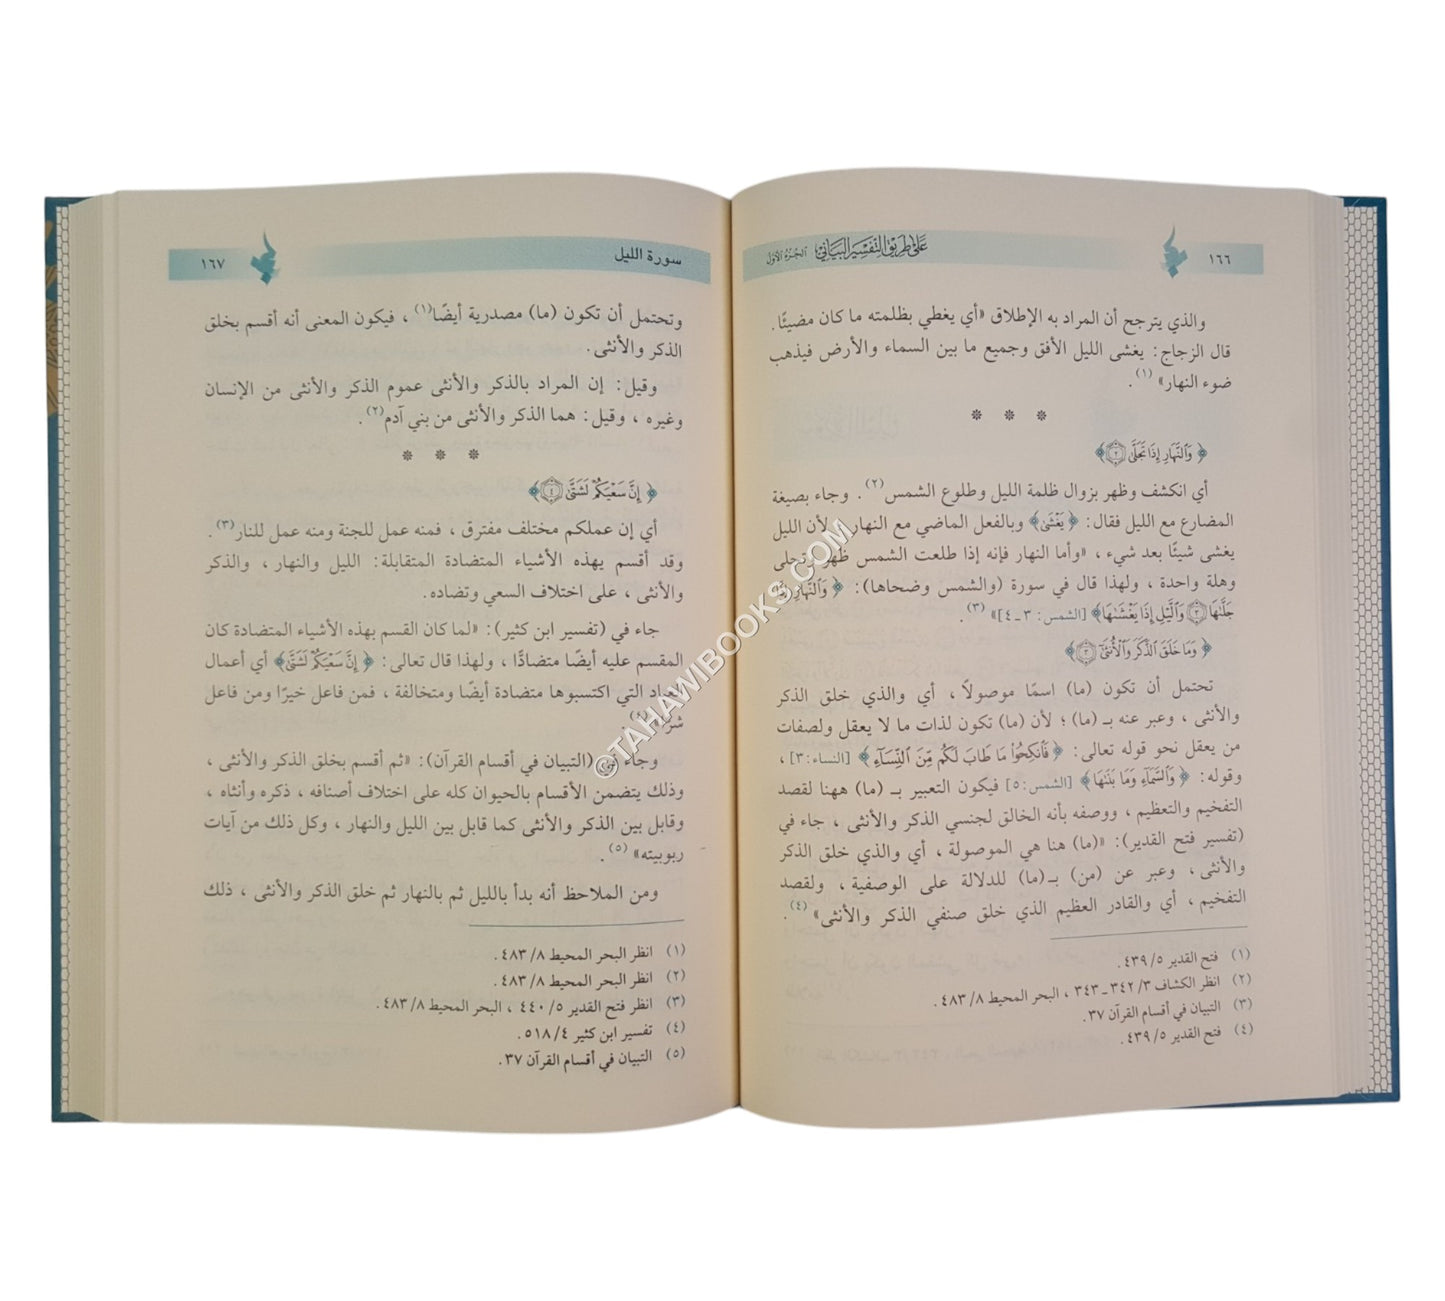 ١٦٦ على طريق التفسير البياني الجزء الأول
والذي يترجح أن المراد به الإطلاق «أي يغطي بظلمته ما كان مضيئًا.
قال الزجاج: يغشى الليل الأفق وجميع ما بين السماء والأرض فيذهب
ضوء النهار» (١).
* * *
﴿وَٱلنَّهَارِ إِذَا تَجَلَّىٰ ٢﴾
أي انكشف وظهر بزوال ظلمة الليل وطلوع الشمس(٢). وجاء بصيغة
المضارع مع الليل فقال: ﴿يَغْشَىٰ﴾ وبالفعل الماضي مع النهار، لأن الليل
يغشى شيئًا بعد شيء، «وأما النهار فإنه إذا طلعت الشمس ظهر وتجلى
وهلة واحدة، ولهذا قال في سورة (والشمس وضحاها): ﴿وَٱلنَّهَارِ إِذَا
جَلَّىٰهَا ٣ وَٱلَّيْلِ إِذَا يَغْشَىٰهَا﴾ [الشمس: ٣ـ٤]» (٣).
﴿وَمَا خَلَقَ ٱلذَّكَرَ وَٱلْأُنثَىٰٓ ٣﴾
تحتمل أن تكون (ما) اسمًا موصولًا، أي والذي خلق الذكر
والأنثى، وعبر عنه بـ (ما)؛ لأن (ما) تكون لذات ما لا يعقل ولصفات
من يعقل نحو قوله تعالى: ﴿فَٱنكِحُوا۟ مَا طَابَ لَكُم مِّنَ ٱلنِّسَآءِ﴾ [النساء: ٣]،
وقوله: ﴿وَٱلسَّمَآءِ وَمَا بَنَىٰهَا﴾ [الشمس: ٥] فيكون التعبير بـ (ما) ههنا لقصد
التفخيم والتعظيم، ووصفه بأنه الخالق لجنسي الذكر والأنثى، جاء في
(تفسير فتح القدير): «(ما) هنا هي الموصولة، أي والذي خلق الذكر
والأنثى، وعبر عن (من) بـ(ما) للدلالة على الوصفية، ولقصد
التفخيم، أي والقادر العظيم الذي خلق صنفي الذكر والأنثى» (٤).
(١) فتح القدير ٥/ ٤٣٩.
(٢) انظر الكشاف ٣/ ٣٤٢ـ٣٤٣، البحر المحيط ٨/ ٤٨٣.
(٣) التبيان في أقسام القرآن ٣٧.
(٤) فتح القدير ٥/ ٤٣٩.
سورة الليل ١٦٧
وتحتمل أن تكون (ما) مصدرية أيضًا(١)، فيكون المعنى أنه أقسم بخلق
الذكر والأنثى.
وقيل: إن المراد بالذكر والأنثى عموم الذكر والأنثى من الإنسان
وغيره، وقيل: هما الذكر والأنثى من بني آدم(٢).
* * *
﴿إِنَّ سَعْيَكُمْ لَشَتَّىٰ ٤﴾
أي إن عملكم مختلف مفترق، فمنه عمل للجنة ومنه عمل للنار(٣).
وقد أقسم بهذه الأشياء المتضادة المتقابلة: الليل والنهار، والذكر
والأنثى، على اختلاف السعي وتضاده.
جاء في (تفسير ابن كثير): «لما كان القسم بهذه الأشياء المتضادة كان
المقسم عليه أيضًا متضادًّا، ولهذا قال تعالى: ﴿إِنَّ سَعْيَكُمْ لَشَتَّىٰ﴾ أي أعمال
العباد التي اكتسبوها متضادة أيضًا ومتخالفة، فمن فاعل خيرًا ومن فاعل
شرًا» (٤).
وجاء في (التبيان في أقسام القرآن): «ثم أقسم بخلق الذكر والأنثى،
وذلك يتضمن الأقسام بالحيوان كله على اختلاف أصنافه، ذكره وأنثاه،
وقابل بين الذكر والأنثى كما قابل بين الليل والنهار، وكل ذلك من آيات
ربوبيته» (٥).
ومن الملاحظ أنه بدأ بالليل ثم بالنهار ثم خلق الذكر والأنثى، ذلك
(١) انظر البحر المحيط ٨/ ٤٨٣.
(٢) انظر البحر المحيط ٨/ ٤٨٣.
(٣) انظر فتح القدير ٥/ ٤٤٠، البحر المحيط ٨/ ٤٨٣.
(٤) تفسير ابن كثير ٤/ ٥١٨.
(٥) التبيان في أقسام القرآن ٣٧.
©TAHAWIBOOKS.COM